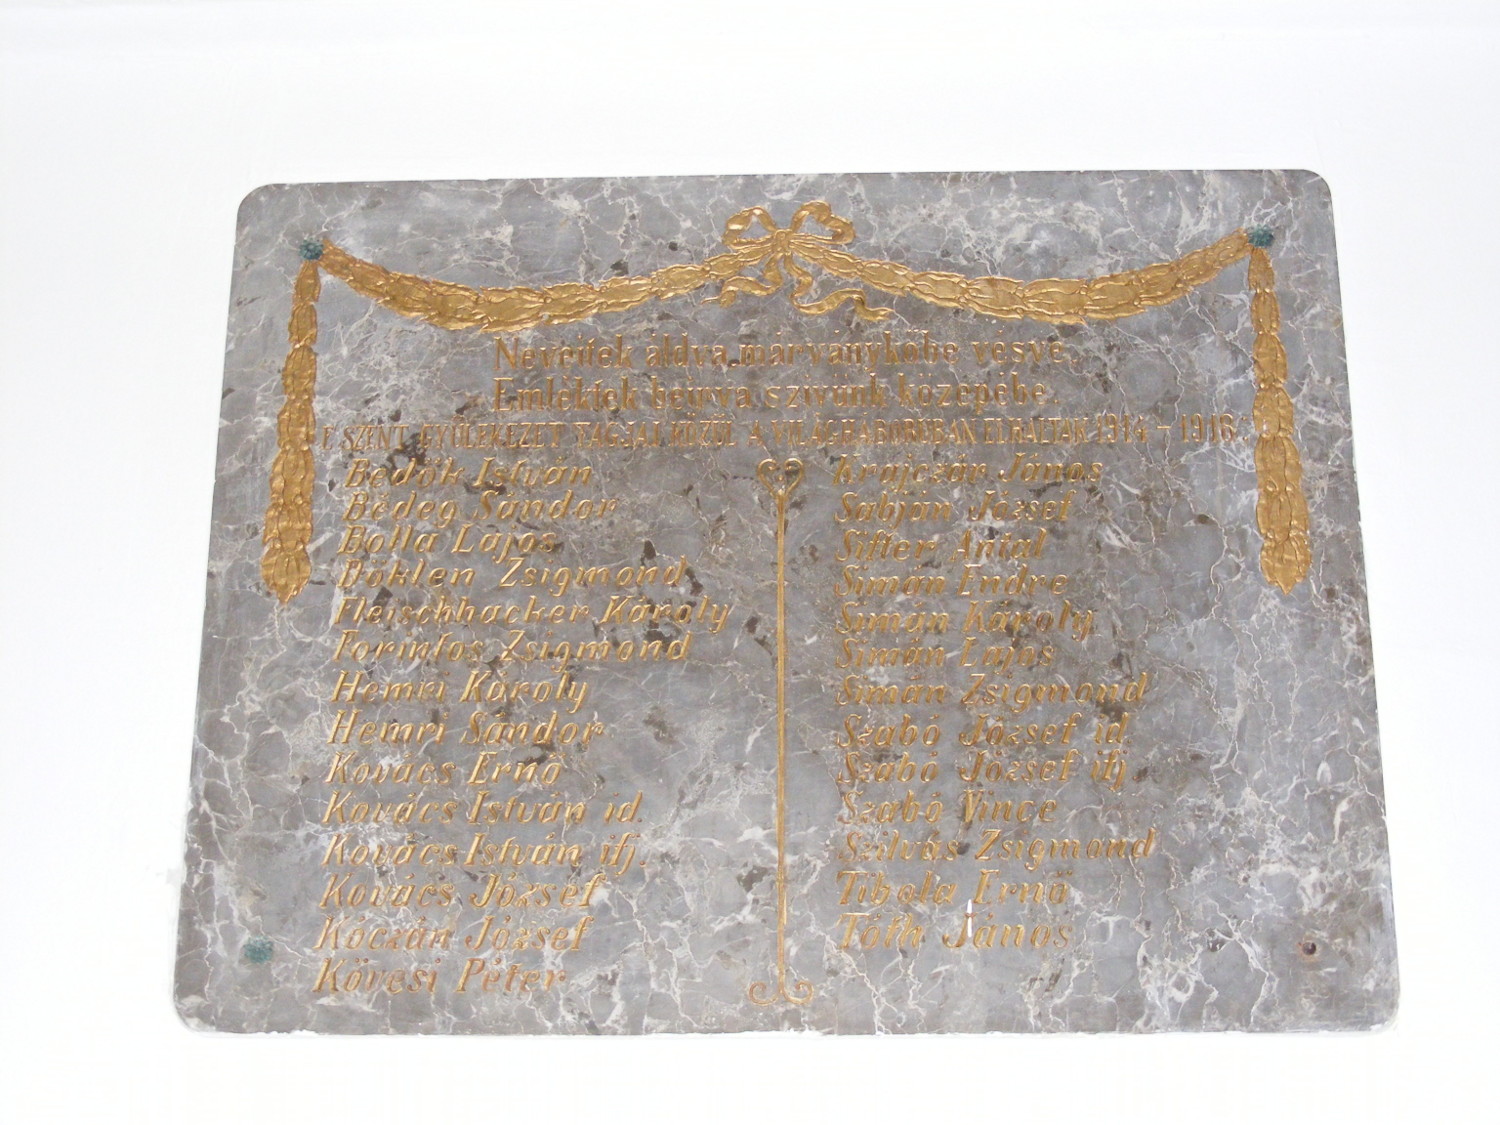 Neveitek áldva márványkőbe vésve,
Emléktek beirva szivünk közepébe.
E SZENT GYÜLEKEZET TAGJAI KÖZÜL A VILÁGHÁBORUBAN ELHALTAK 1914-1918:
Bedők István
Bédeg Sándor
Bolla Lajos
Döklen Zsigmond
Fleischhacker Károly
Forintos Zsigmond
Hemri Károly
Hemri Sándor
Kovács Ernő
Kovács István id.
Kovács István ifj.
Kovács József
Kóczán József
Kövesi Péter
Krajczár János
Sabján József
Sifter Antal
Simán Endre
Simán Károly
Simán Lajos
Simán Zsigmond
Szabó József id
Szabó József ifj.
Szabó Vince
Szilvás Zsigmond
Tibola Ernő
Tóth János